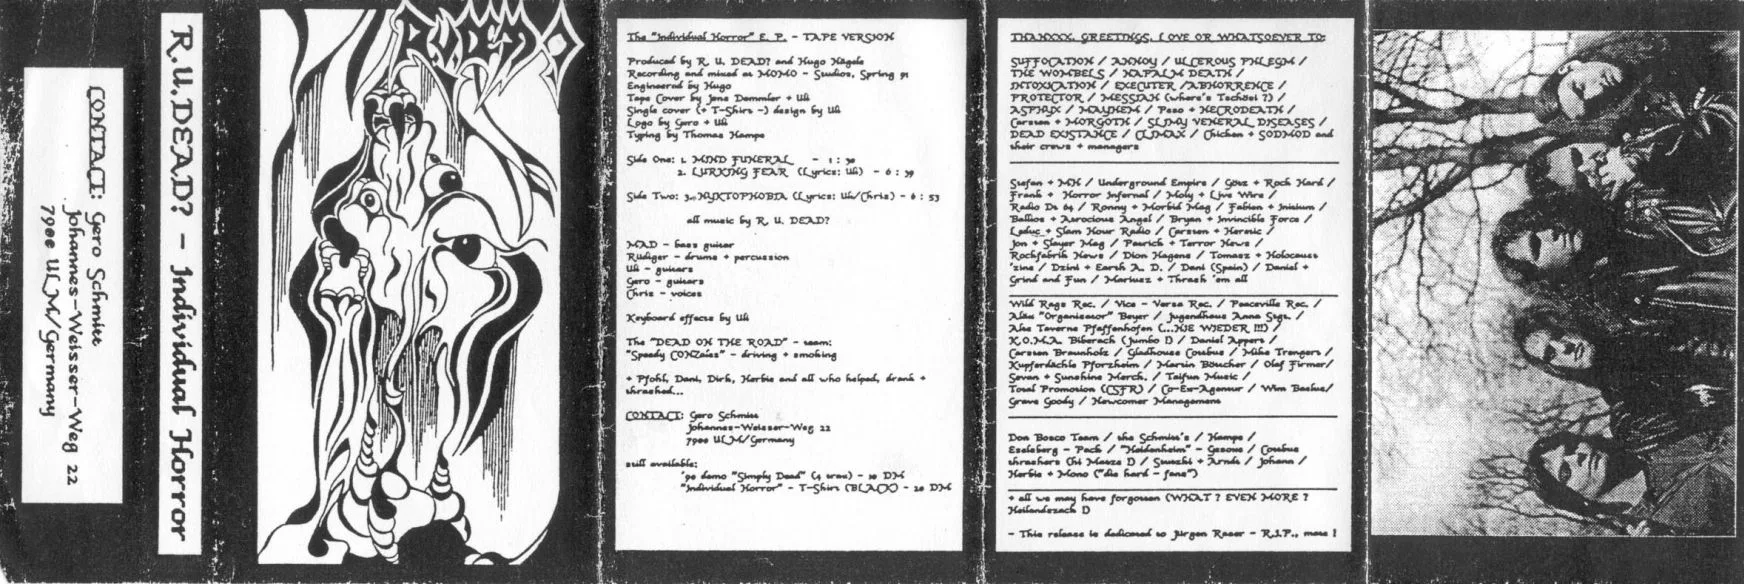 CONTACT: Gero Schmitt
Johannes-Weisser-Weg 22
7900 ULM/Germany
R.U.DEAD? - Individual Horror
The "Individual Horror" E. P. - TAPE VERSION
Produced by R. U. DEAD? and Hugo Hägele
Recording and mixed at MOMO - Studios, Spring 91
Engineered by Hugo
Tape Cover by Jens Demmler + Uli
Single cover (+ T-Shirt -) design by Uli
Logo by Gero + Uli
Typing by Thomas Hampe
Side One: 1. MIND FUNERAL - 1 : 30
2. LURKING FEAR (Lyrics: Uli) - 6 : 39
Side Two: 3. NYKTOPHOBIA (Lyrics: Uli/Chris) - 6 : 53
all music by R. U. DEAD?
MAD - bass guitar
Rüdiger - drums + percussion
Uli - guitars
Gero - guitars
Chris - voices
Keyboard effects by Uli
The "DEAD ON THE ROAD" - team:
"Speedy CONZales" - driving + smoking
+ Pfohl, Dani, Dirk, Herbie and all who helped, drank +
thrashed...
CONTACT: Gero Schmitt
Johannes-Weisser-Weg 22
7900 ULM/Germany
still available:
'90 demo "Simply Dead" (4 trax) - 10 DM
"Individual Horror" - T-Shirt (BLACK) - 20 DM
THANXXX, GREETINGS, LOVE OR WHATSOEVER TO:
SUFFOCATION / ANNOY / ULCEROUS PHLEGM /
THE WOMBELS / NAPALM DEATH /
INTOXICATION / EXECUTER / ABHORRENCE /
PROTECTOR / MESSIAH (where's Tschösi ?) /
ASPHYX / MAYHEM / Peso + NECRODEATH /
Carsten + MORGOTH / SLIMY VENERAL DISEASES /
DEAD EXISTANCE / CLIMAX / Chicken + SODMOD and
their crews + managers
Stefan + MH / Underground Empire / Götz + Rock Hard /
Frank + Horror Infernal / Holy + Live Wire /
Radio Dt 64 / Ronny + Morbid Mag / Fabien + Initium /
Ballios + Atrocious Angel / Bryan + Invincible Force /
Leduc + Slam Hour Radio / Carsten + Heretic /
Jon + Slayer Mag / Patrick + Terror News /
Rockfabrik News / Dion Hagens / Tomasz + Holocaust
'zine / Dzini + Earth A. D. / Dani (Spain) / Daniel +
Grind and Fun / Mariusz + Thrash 'em all
Wild Rags Rec. / Vice - Versa Rec. / Peaceville Rec. /
Alex "Organisator" Beyer / Jugendhaus Anna Stgt. /
Alte Taverne Pfaffenhofen (...NIE WIEDER !!!) /
K.O.M.A. Biberach (Jumbo !) / Daniel Appers /
Carsten Braunholz / Gladhouse Cottbus / Mike Trengert /
Kupferdächle Pforzheim / Martin Böttcher / Olaf Firmer/
Sevan + Sunshine Merch. / Taifun Music /
Total Promotion (CSFR) / Co-Ex-Agentur / Wim Baelus/
Grave Goody / Newcomer Management
Don Bosco Team / the Schmitt's / Hampe /
Eselsberg - Pack / "Heidenheim" - Gesocs / Cottbus
thrashers (hi Matze !) / Strezhi + Arndt / Johann /
Herbie + Mono ("die hard - fans")
+ all we may have forgotten (WHAT ? EVEN MORE ?
Heilandzack !)
- This release is dedicated to Jürgen Raser - R.I.P., mate !